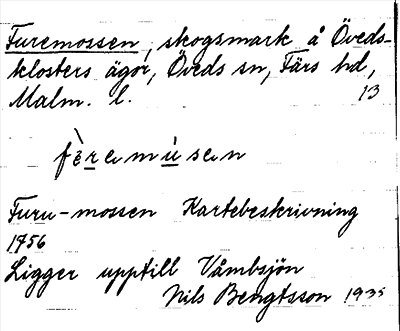 Furemossen, skogsmark å Öveds-
klosters ägor, Öveds sn, Färs hd,
Malm. l. 13
fɛ̀remúsen
Furu-mossen Kartebeskrivning
1756
Ligger upptill Våmbsjön
Nils Bengtsson 1935